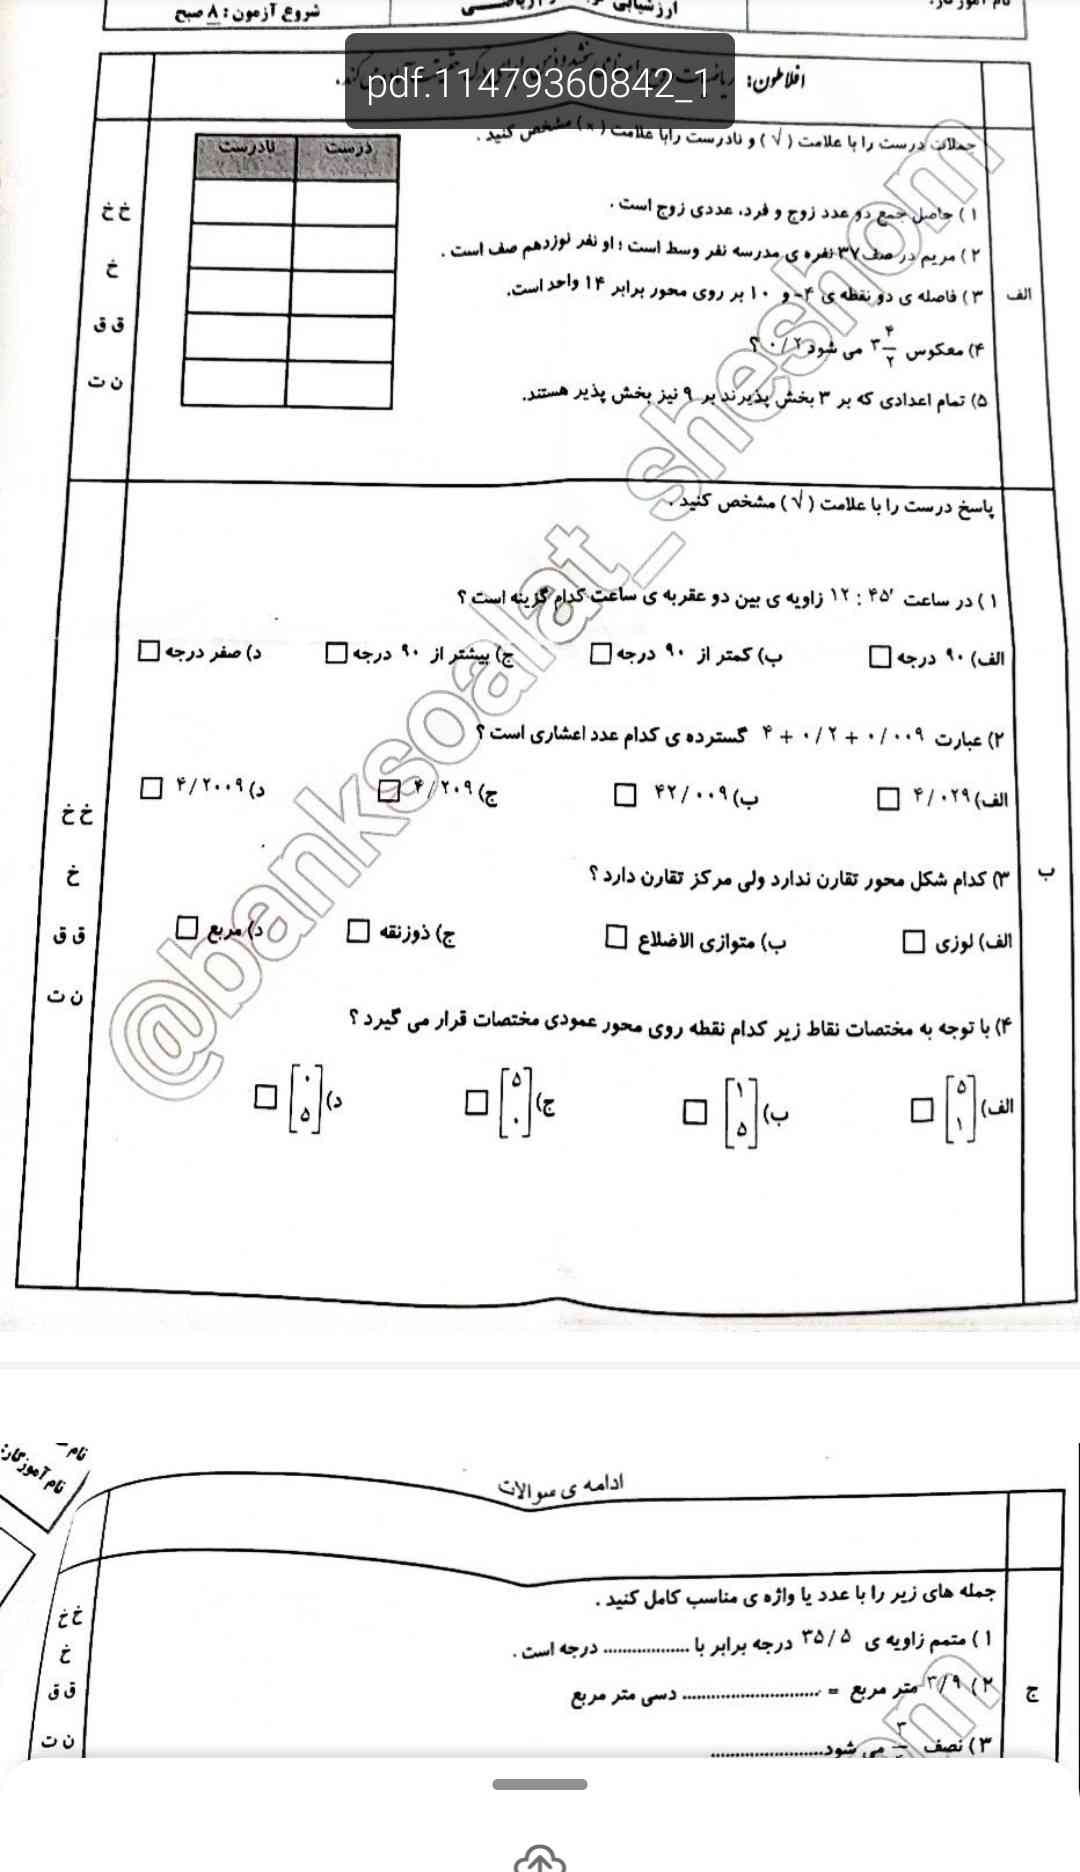 شروع آزمون : ۸ صبح
pdf.11479360842_1
افلاطون:
جملات درست را با علامت ( √ ) و نادرست رابا علامت ( × ) مشخص کنید .
درست نادرست
۱ ) حاصل جمع دو عدد زوج و فرد، عددی زوج است .
۲ ) مریم در صف ۳۷ نفره ی مدرسه نفر وسط است ؛ او نفر نوزدهم صف است .
الف
۳ ) فاصله ی دو نقطه ی ۴- و ۱۰ بر روی محور برابر ۱۴ واحد است.
۴) معکوس ۳ ۴/۲ می شود ۰/۲ ؟
۵) تمام اعدادی که بر ۳ بخش پذیرند بر ۹ نیز بخش پذیر هستند.
خ خ
خ
ق ق
ن ت
پاسخ درست را با علامت ( √ ) مشخص کنید .
۱ ) در ساعت ۱۲ : ۴۵′ زاویه ی بین دو عقربه ی ساعت کدام گزینه است ؟
الف) ۹۰ درجه ب) کمتر از ۹۰ درجه ج) بیشتر از ۹۰ درجه د) صفر درجه
۲) عبارت ۴ + ۰/۲ + ۰/۰۰۹ گسترده ی کدام عدد اعشاری است ؟
الف) ۴/۰۲۹ ب) ۴۲/۰۰۹ ج) ۴/۲۰۹ د) ۴/۲۰۰۹
ب
۳) کدام شکل محور تقارن ندارد ولی مرکز تقارن دارد ؟
الف) لوزی ب) متوازی الاضلاع ج) ذوزنقه د) مربع
۴) با توجه به مختصات نقاط زیر کدام نقطه روی محور عمودی مختصات قرار می گیرد ؟
الف) [۵ ۱] ب) [۱ ۵] ج) [۵ ۰] د) [۰ ۵]
خ خ
خ
ق ق
ن ت
@banksoalat_sheshom
نام
نام آموزگار:
ادامه ی سوالات
جمله های زیر را با عدد یا واژه ی مناسب کامل کنید .
۱ ) متمم زاویه ی ۳۵/۵ درجه برابر با .................. درجه است .
ج
۲ ) ۳/۹ متر مربع = ............................. دسی متر مربع
۳ ) نصف می شود........................
خ خ
خ
ق ق
ن ت